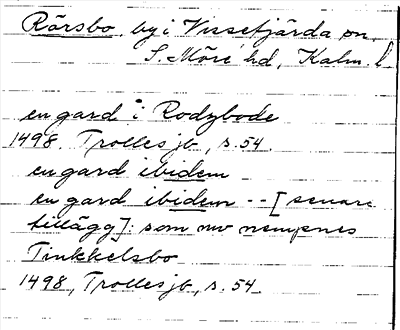 Rörsbo, by i Vissefjärda sn,
S. Möre hd, Kalm. l
en gard i Rodzbode
1498. Trolles jb, s. 54.
en gard ibidem
en gard ibidem -- [senare
tillägg]: som nw nempnes
Tinkkelsbo
1498, Trolles jb, s. 54